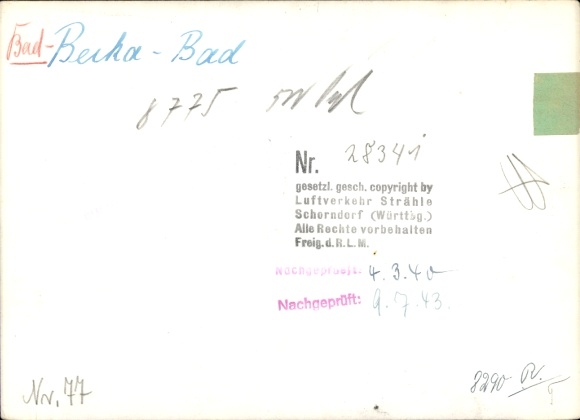 Bad- Berka - Bad
8775
Nr. 28341
gesetzl. gesch. copyright by
Luftverkehr Strähle
Schorndorf (Württbg.)
Alle Rechte vorbehalten
Freig. d. R. L. M.
Nachgeprüft: 4.3.40
Nachgeprüft: 9.7.43.
Nr. 77
8290